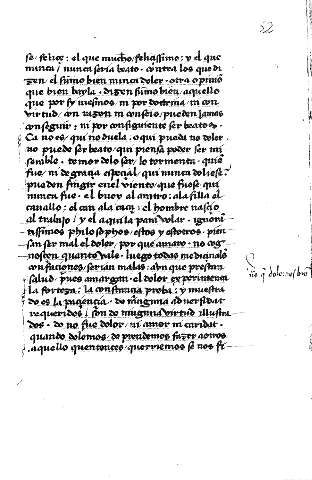 52
se. felice: el que mucho felicissimo: y el que
nunca / nunca seria beato. contra los que di
zen el sumo bien nunca doler. otra opinion
que bien bayla. dizen sumo bien. aquello
que por sy mesmos ni por doctrina ni con
virtud. con razon ni consejo, pueden jamas
conseguir: ni por consiguiente ser beatos.
Ca no es, qui no duela. o qui pueda no doler.
no puede ser beato, qui piensa poder ser mi
serable. temor dolo ser, lo tormenta. quien
fue, ni de gracia especial, qui nunca doliesse.
pueden fingir en el viento, que fuese qui
nunca fue. el buey al aratro: a la silla el
cauallo: el can a la caça: el hombre nascio
al trabajo / y el aquila para volar. ignoran
tissimos philosophos. estos y estotros. pien
san ser mal el doler, por que amargo. no cog
noscen quanto vale. luego todas medicinales
confectiones serian malas: ahun que prestan
salud. pues amargan. el dolor experimenta
la forteza: la constancia prueba: y muestra
do es la paciencia. do ninguna aduersidat
requeridos / son de ninguna virtud illustra
dos. do no fue dolor. ni amor ni caridat.
quando dolemos. deprendemos fazer a otros
aquello que entonces querriemos se nos fi
no q̃ doler